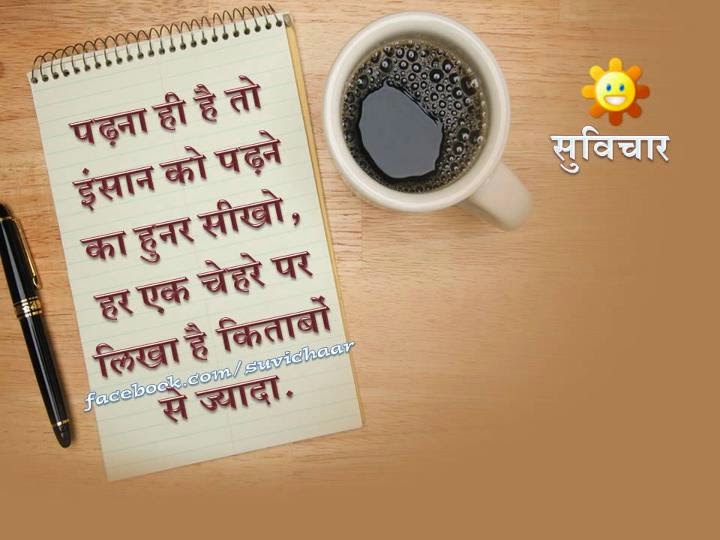 पढ़ना ही है तो
इंसान को पढ़ने
का हुनर सीखो,
हर एक चेहरे पर
लिखा है किताबों
से ज्यादा.
facebook.com/suvichaar
सुविचार